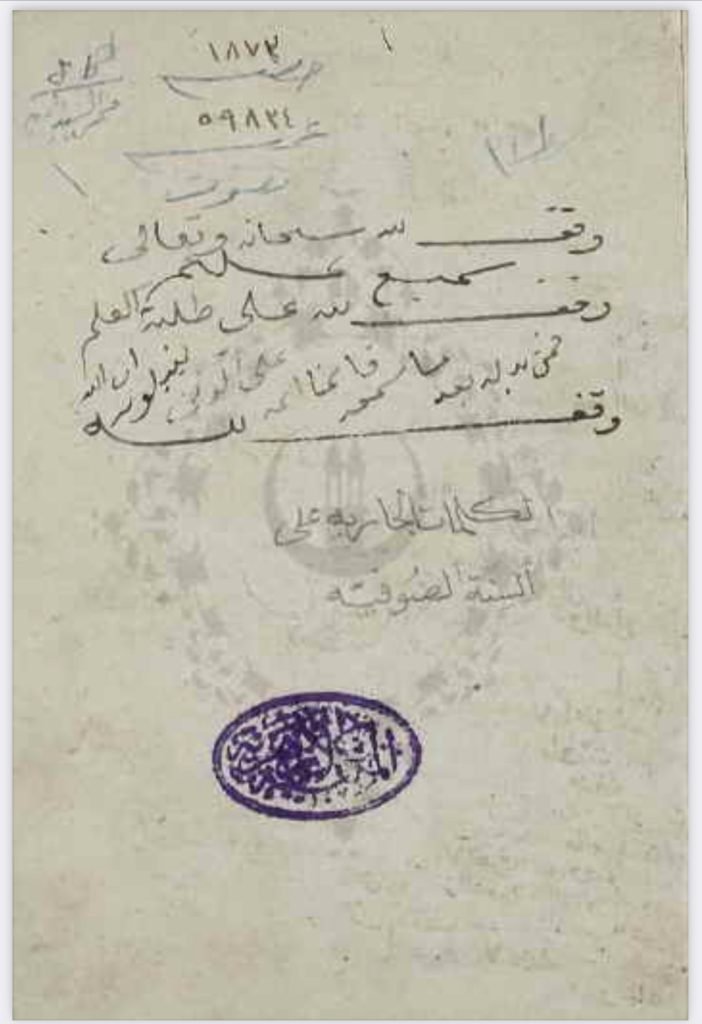 ١٨٧٣
٥٩٨٣٤
تصوف
وقف لله سبحانه وتعالى
وقف لله على طلبة العلم
فمن بدله بعد ما سمعه فانما اثمه على الذين يبدلونه ان الله
سميع عليم
وقف لله
الكلمات الجاريه على
ألسنة الصُوفيّه